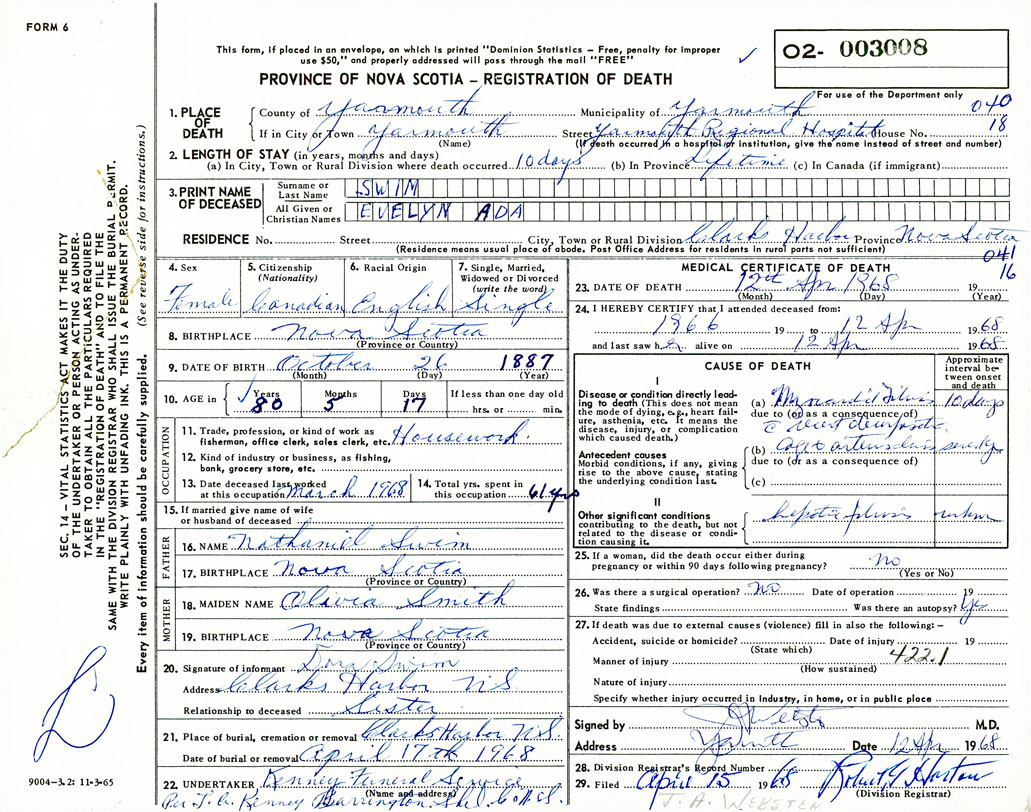 FORM 6
This form, if placed in an envelope, on which is printed "Dominion Statistics – Free, penalty for improper
use $50," and properly addressed will pass through the mail "FREE"
PROVINCE OF NOVA SCOTIA – REGISTRATION OF DEATH
O2- 003008
For use of the Department only
040
18
1. PLACE OF DEATH
County of Yarmouth Municipality of Yarmouth
If in City or Town Yarmouth Street Yarmouth Regional Hospital House No.
(Name) (If death occurred in a hospital or institution, give the name instead of street and number)
2. LENGTH OF STAY (in years, months and days)
(a) In City, Town or Rural Division where death occurred 10 days (b) In Province Lifetime (c) In Canada (if immigrant)
3. PRINT NAME OF DECEASED
Surname or Last Name SWIM
All Given or Christian Names EVELYN ADA
RESIDENCE No. Street City, Town or Rural Division Clarks Harbor Province Nova Scotia
(Residence means usual place of abode. Post Office Address for residents in rural parts not sufficient)
041
16
4. Sex Female
5. Citizenship (Nationality) Canadian
6. Racial Origin English
7. Single, Married, Widowed or Divorced (write the word) Single
8. BIRTHPLACE Nova Scotia
(Province or Country)
9. DATE OF BIRTH October 26 1887
(Month) (Day) (Year)
10. AGE in Years 80 Months 5 Days 17 If less than one day old hrs. or min.
OCCUPATION
11. Trade, profession, or kind of work as
fisherman, office clerk, sales clerk, etc. Housework.
12. Kind of industry or business, as fishing,
bank, grocery store, etc.
13. Date deceased last worked
at this occupation March 1968
14. Total yrs. spent in
this occupation 61 yrs
15. If married give name of wife
or husband of deceased
FATHER
16. NAME Nathaniel Swim
17. BIRTHPLACE Nova Scotia
(Province or Country)
MOTHER
18. MAIDEN NAME Olivia Smith
19. BIRTHPLACE Nova Scotia
(Province or Country)
20. Signature of informant Dora Swim
Address Clarks Harbor NS
Relationship to deceased Sister
21. Place of burial, cremation or removal Clarks Harbor N.S.
Date of burial or removal April 17th 1968
22. UNDERTAKER Kenney Funeral Service
(Name and address)
Per Kenney Barrington
MEDICAL CERTIFICATE OF DEATH
23. DATE OF DEATH 12th Apr 1968 19
(Month) (Day) (Year)
24. I HEREBY CERTIFY that I attended deceased from:
1966 19 to 12 Apr 1968
and last saw her alive on 12 Apr 1968
CAUSE OF DEATH
Approximate interval between onset and death
I
Disease or condition directly leading
to death (This does not mean
the mode of dying, e.g., heart failure,
asthenia, etc. It means the
disease, injury, or complication
which caused death.)
(a) 10 days
due to (or as a consequence of)
Antecedent causes
Morbid conditions, if any, giving
rise to the above cause, stating
the underlying condition last.
(b)
due to (or as a consequence of)
(c)
II
Other significant conditions
contributing to the death, but not
related to the disease or condition
causing it.
25. If a woman, did the death occur either during
pregnancy or within 90 days following pregnancy? no
(Yes or No)
26. Was there a surgical operation? no Date of operation 19
State findings Was there an autopsy? Yes
27. If death was due to external causes (violence) fill in also the following: –
Accident, suicide or homicide? Date of injury 19
(State which)
422.1
Manner of injury
(How sustained)
Nature of injury
Specify whether injury occurred in Industry, in home, or in public place
Signed by J A Webster M.D.
Address Yarmouth Date 12 Apr 1968
28. Division Registrar's Record Number
29. Filed April 15 1968
(Division Registrar)
J. A. WEBSTER
SEC. 14 – VITAL STATISTICS ACT MAKES IT THE DUTY
OF THE UNDERTAKER OR PERSON ACTING AS UNDERTAKER
TO OBTAIN ALL THE PARTICULARS REQUIRED
IN THE "REGISTRATION OF DEATH" AND TO FILE THE
SAME WITH THE DIVISION REGISTRAR WHO SHALL ISSUE THE BURIAL PERMIT.
WRITE PLAINLY WITH UNFADING INK. THIS IS A PERMANENT RECORD.
Every item of information should be carefully supplied. (See reverse side for instructions.)
9004-3.2: 11-3-65